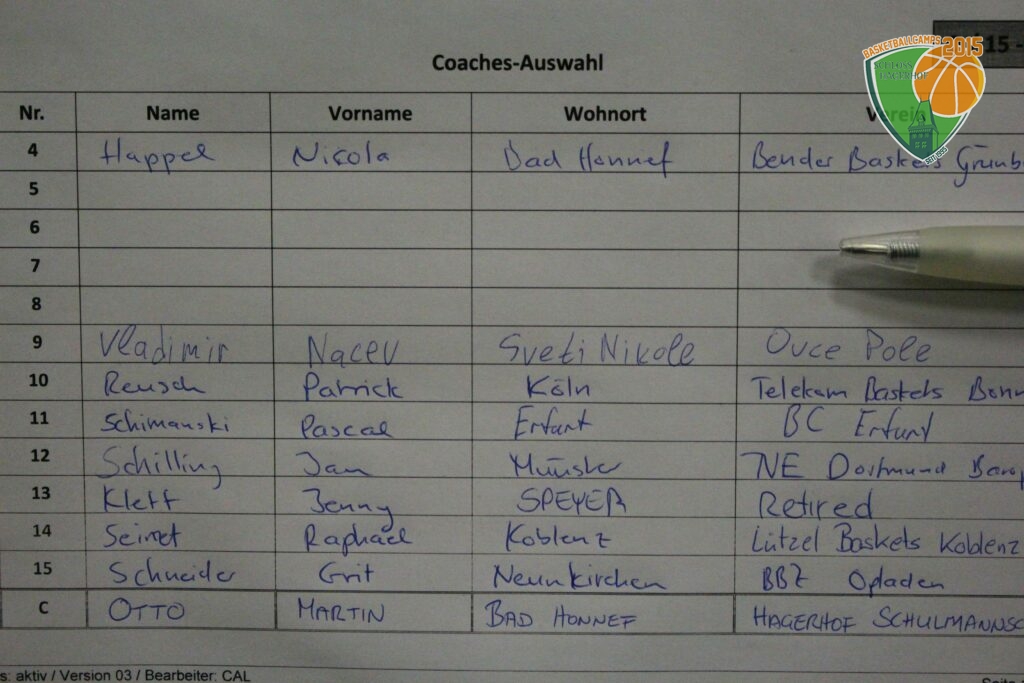 BASKETBALLCAMPS 2015
SCHLOSS HAGERHOF
15 -
Coaches-Auswahl
Nr. Name Vorname Wohnort Verein
4 Happel Nicola Bad Honnef Bender Baskets Grünb
5
6
7
8
9 Vladimir Nacev Sveti Nikole Ovce Pole
10 Reusch Patrick Köln Telekom Baskets Bonn
11 Schimanski Pascal Erfurt BC Erfurt
12 Schilling Jan Münster TVE Dortmund Barop
13 Klett Jenny SPEYER Retired
14 Raphael Koblenz Lützel Baskets Koblenz
15 Schneider Grit Neunkirchen BBZ Opladen
C OTTO MARTIN BAD HONNEF HAGERHOF SCHULMANNSC
s: aktiv / Version 03 / Bearbeiter: CAL
Seite